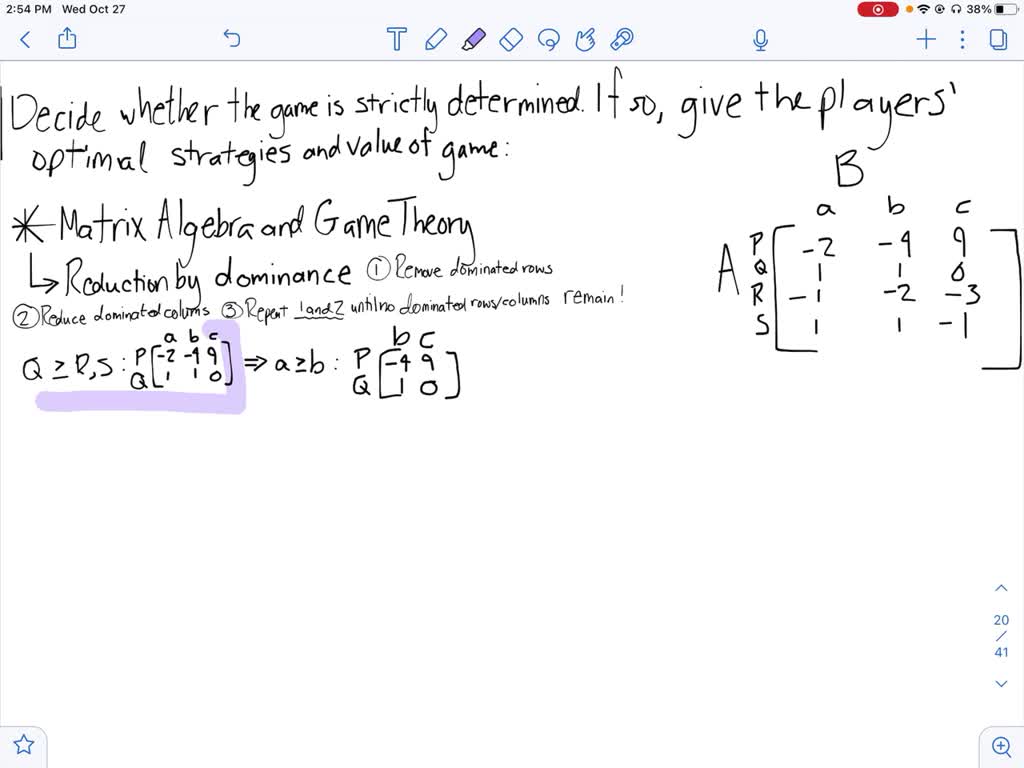 2:54 PM Wed Oct 27
38%
Decide whether the game is strictly determined. If so, give the players'
optimal strategies and value of game:
B
* Matrix Algebra and Game Theory
a b c
P -2 -4 9
A Q 1 1 0
R -1 -2 -3
S 1 1 -1
↳ Reduction by dominance ① Remove dominated rows
② Reduce dominated colums ③ Repeat 1 and 2 until no dominated rows/columns remain!
a b c
b c
Q ≥ R,S : P [-2 -4 9 ⇒ a ≥ b : P [-4 9
Q 1 1 0] Q 1 0]
20
/
41